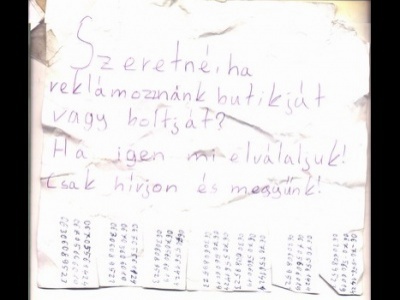 Szeretné, ha
reklámoznánk butikját
vagy boltját?
Ha igen mi elválaljuk!
Csak hívjon és megyünk!